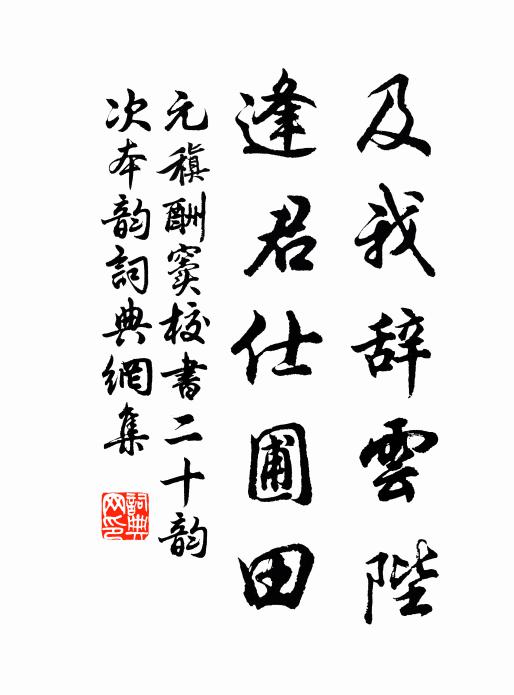 及我辞雲陛
逢君仕圃田
元稹酬窦校書二十韵
次本韵詞典網集
詞典
网印